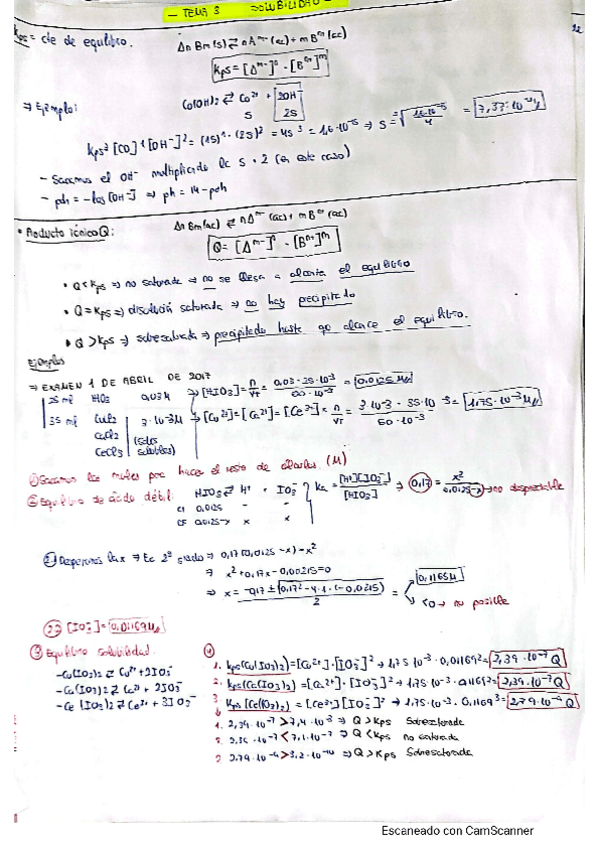 - TEMA 3 SOLUBILIDAD
Kps = cte de equilibro. An Bm (s) ⇄ nA^m- (ac) + m B^n+ (ac)
Kps = [A^m-]^n · [B^n+]^m
⇒ Ejemplo: Co(OH)2 ⇄ Co^2+ + 2OH^-
S 2S
Kps = [CO]^1 [OH^-]^2 = (1S)^1 · (2S)^2 = 4S^3 = 1,6·10^-15 ⇒ S =
- Sacamos el OH^- multiplicando la S · 2 (en este caso)
- poh = -log [OH^-] ⇒ ph = 14 - poh
• Producto iónico Q: An Bm (ac) ⇄ nA^m- (ac) + m B^n+ (ac)
Q = [A^m-]^n · [B^n+]^m
• Q < Kps ⇒ no saturada ⇒ no se llega a alcanza el equilibrio
• Q = Kps ⇒ disolución saturada ⇒ no hay precipitado
• Q > Kps ⇒ sobresaturada ⇒ precipitado hasta qe alcance el equilibro.
Ejemplos
⇒ EXAMEN 1 DE ABRIL DE 2017
25 ml HIO3 0,03M ⇒ [HIO3] = n/VT = 0,03·25·10^-3 / 60·10^-3 = 0,0125 M
35 ml CuCl2 3·10^-3M ⇒ [Cu^2+] = [Ca^2+] = [Ce^3+] = n/VT = 3·10^-3 · 35·10^-3 / 60·10^-3 = 1,75·10^-3 M
CaCl2 (sales
CeCl3 solubles)
① Sacamos las moles por hacer el resto de (M)
② Equilibrio de ácido débil HIO3 ⇄ H^+ + IO3^- Ka = [H^+][IO3^-] / [HIO3] ⇒ 0,17 = x^2 / 0,0125-x ⇒ no despreciable
CI 0,0125 - -
CF 0,0125-x x x
2.1 Despejamos la x ⇒ Ec 2º grado ⇒ 0,17(0,0125 - x) = x^2
⇒ x^2 + 0,17x - 0,00215 = 0
⇒ x = -0,17 ± √(0,17^2 - 4·1·(-0,0215)) / 2 = 0,1165M
<0 → no posible
2.2 [IO3^-] = 0,01169M
③ Equilibrio solubilidad ④
- Cu(IO3)2 ⇄ Cu^2+ + 2IO3^- 1. Kps (Cu(IO3)2) = [Cu^2+]·[IO3^-]^2 ⇒ 1,75·10^-3 · 0,01169^2 = 2,39·10^-7 Q
- Ca(IO3)2 ⇄ Ca^2+ + 2IO3^- 2. Kps (Ca(IO3)2) = [Ca^2+]·[IO3^-]^2 ⇒ 1,75·10^-3 · 0,01169^2 = 2,39·10^-7 Q
- Ce (IO3)2 ⇄ Ce^3+ + 3IO3^- 3. Kps [Ce(IO3)2] = [Ce^3+][IO3^-]^3 ⇒ 1,75·10^-3 · 0,1169^3 = 2,79·10^-9 Q
1. 2,39·10^-7 > 7,4·10^-8 ⇒ Q > Kps Sobresaturada
2. 2,39·10^-7 < 7,1·10^-7 ⇒ Q < Kps no saturada
3. 2,79·10^-9 > 3,2·10^-10 ⇒ Q > Kps Sobresaturada
Escaneado con CamScanner